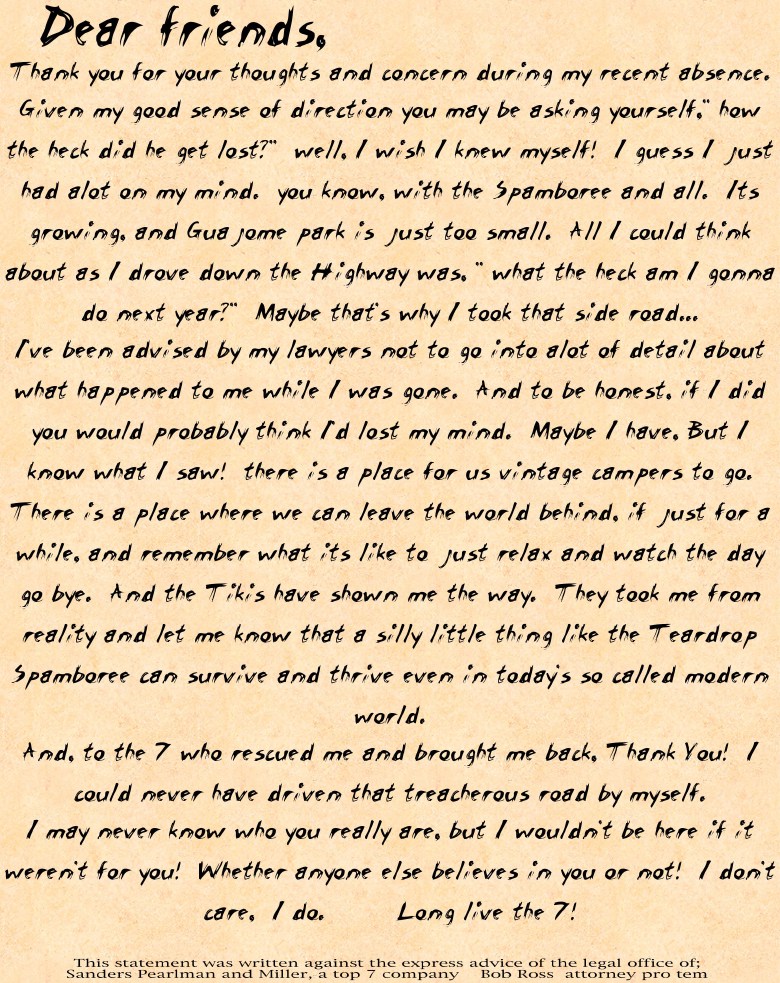 Dear friends,
Thank you for your thoughts and concern during my recent absence.
Given my good sense of direction you may be asking yourself," how
the heck did he get lost?" well, I wish I knew myself! I guess I just
had alot on my mind. you know, with the Spamboree and all. Its
growing, and Guajome park is just too small. All I could think
about as I drove down the Highway was, " what the heck am I gonna
do next year?" Maybe that's why I took that side road...
I've been advised by my lawyers not to go into alot of detail about
what happened to me while I was gone. And to be honest, if I did
you would probably think I'd lost my mind. Maybe I have, But I
know what I saw! there is a place for us vintage campers to go.
There is a place where we can leave the world behind, if just for a
while, and remember what its like to just relax and watch the day
go bye. And the Tikis have shown me the way. They took me from
reality and let me know that a silly little thing like the Teardrop
Spamboree can survive and thrive even in today's so called modern
world.
And, to the 7 who rescued me and brought me back, Thank You! I
could never have driven that treacherous road by myself.
I may never know who you really are, but I wouldn't be here if it
weren't for you! Whether anyone else believes in you or not! I don't
care, I do. Long live the 7!
This statement was written against the express advice of the legal office of;
Sanders Pearlman and Miller, a top 7 company Bob Ross attorney pro tem